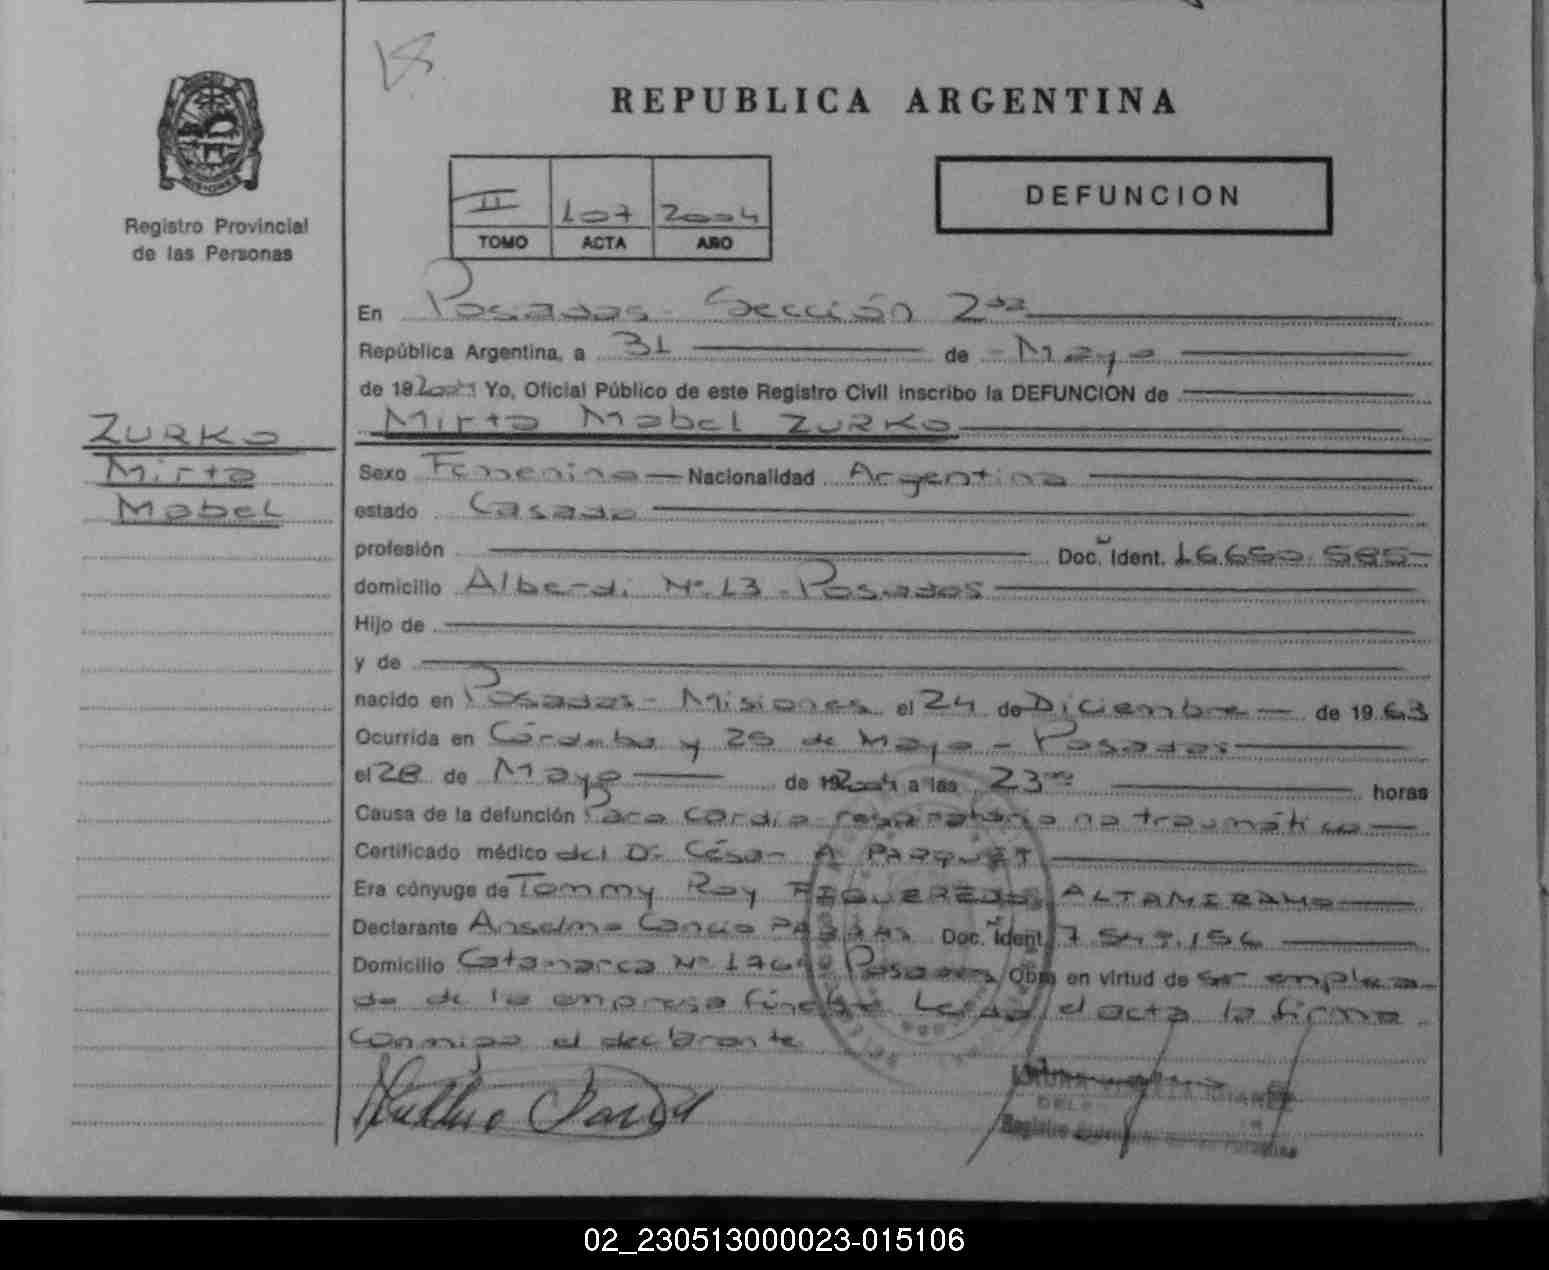 REPUBLICA ARGENTINA
Registro Provincial
de las Personas
II 107 2004
TOMO ACTA AÑO
DEFUNCION
En Posadas - Sección 2da
República Argentina, a 31 de Mayo
de 19 2004 Yo, Oficial Público de este Registro Civil inscribo la DEFUNCION de
Mirta Mabel ZURKO
ZURKO
Mirta
Mabel
Sexo Femenino Nacionalidad Argentina
estado Casada
profesión Doc. Ident. 16.650.585
domicilio Alberdi Nº 13 - Posadas
Hijo de
y de
nacido en Posadas - Misiones el 24 de Diciembre de 1963
Ocurrida en Córdoba y 25 de Mayo - Posadas
el 28 de Mayo de 2004 a las 23 horas
Causa de la defunción Paro Cardio respiratorio no traumático
Certificado médico del Dr. César A. PARQUET
Era cónyuge de Tommy Roy FIGUEREDO ALTAMIRANO
Declarante Anselmo Cancio Doc. Ident. 7.549.156
Domicilio Catamarca Nº Posadas Obra en virtud de ser emplea
do de la empresa fúnebre Leída el acta la firma
conmigo el declarante
02_230513000023-015106